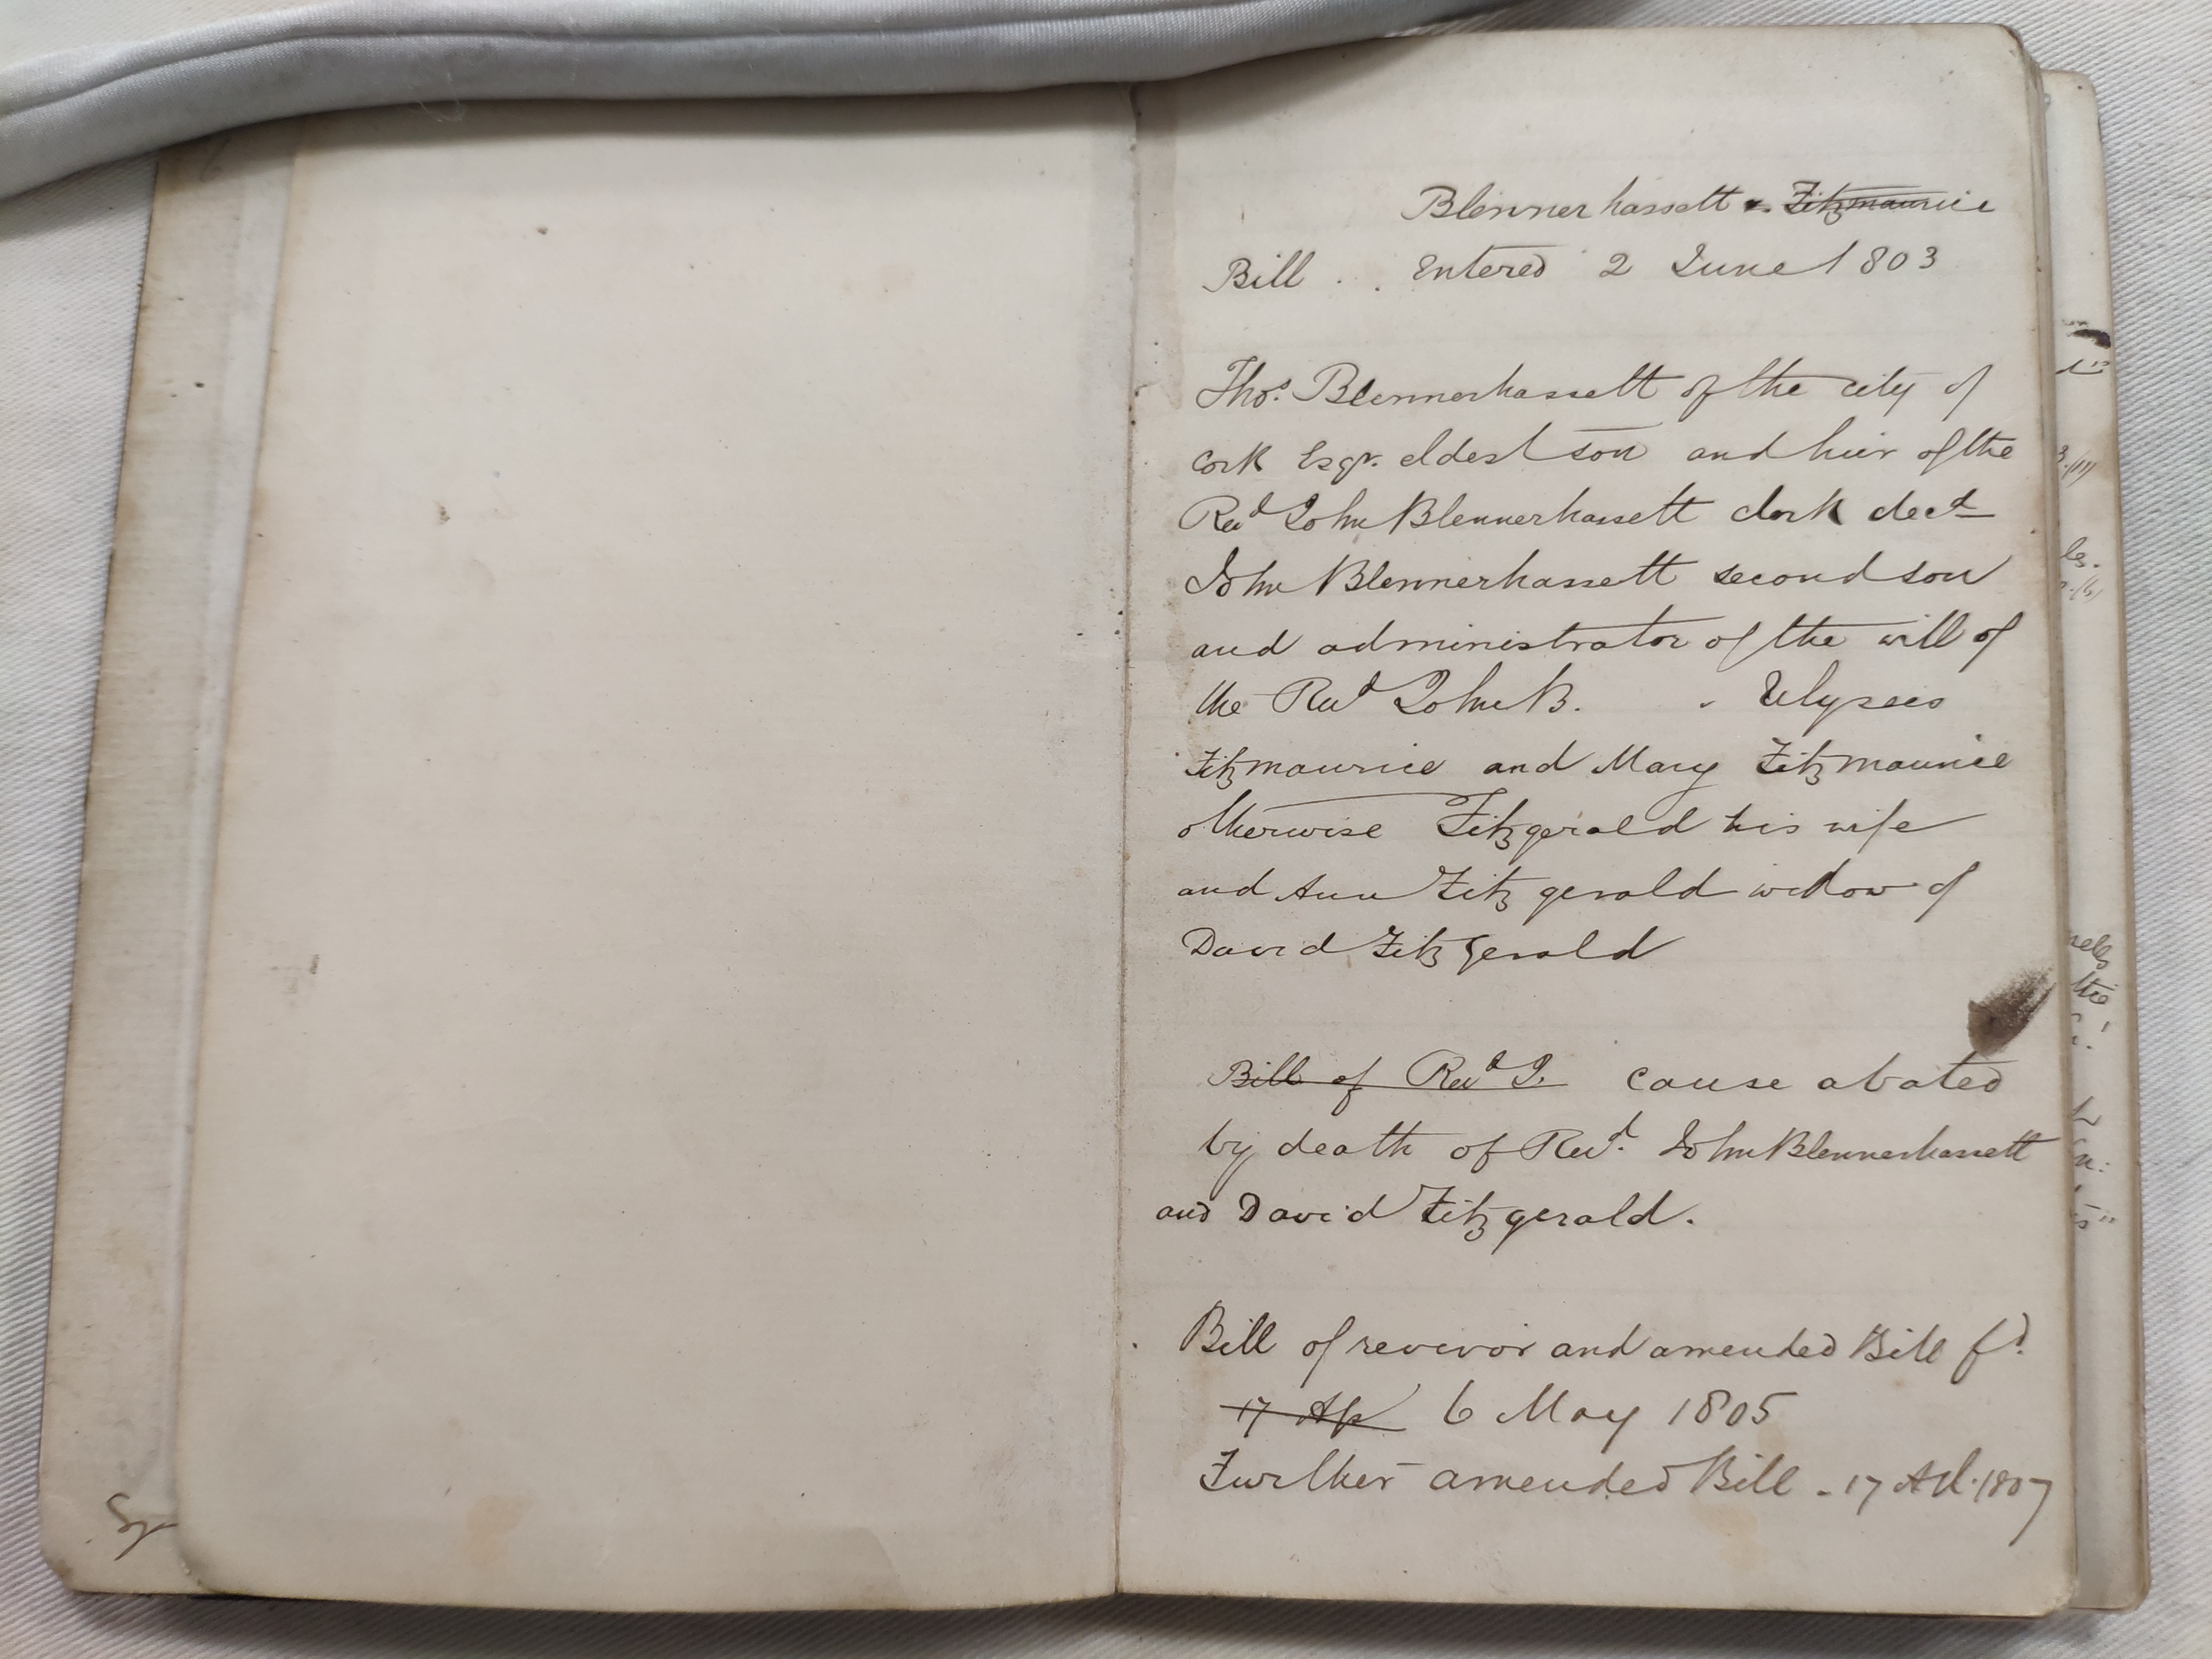 Blennerhassett v. Fitzmaurice
Bill . . Entered 2 June 1803
Thos. Blennerhassett of the city of
Cork Esqr. eldest son and heir of the
Revd John Blennerhassett clerk decd
John Blennerhassett second son
and administrator of the will of
the Revd John B. Ulysses
Fitzmaurice and Mary Fitzmaurice
otherwise Fitzgerald his wife
and Ann Fitzgerald widow of
David Fitzgerald
Bill of Revd J. cause abated
by death of Revd. John Blennerhassett
and David Fitzgerald.
Bill of revivor and amended Bill fd.
17 Ap 6 May 1805
Further amended Bill - 17 Apl. 1807